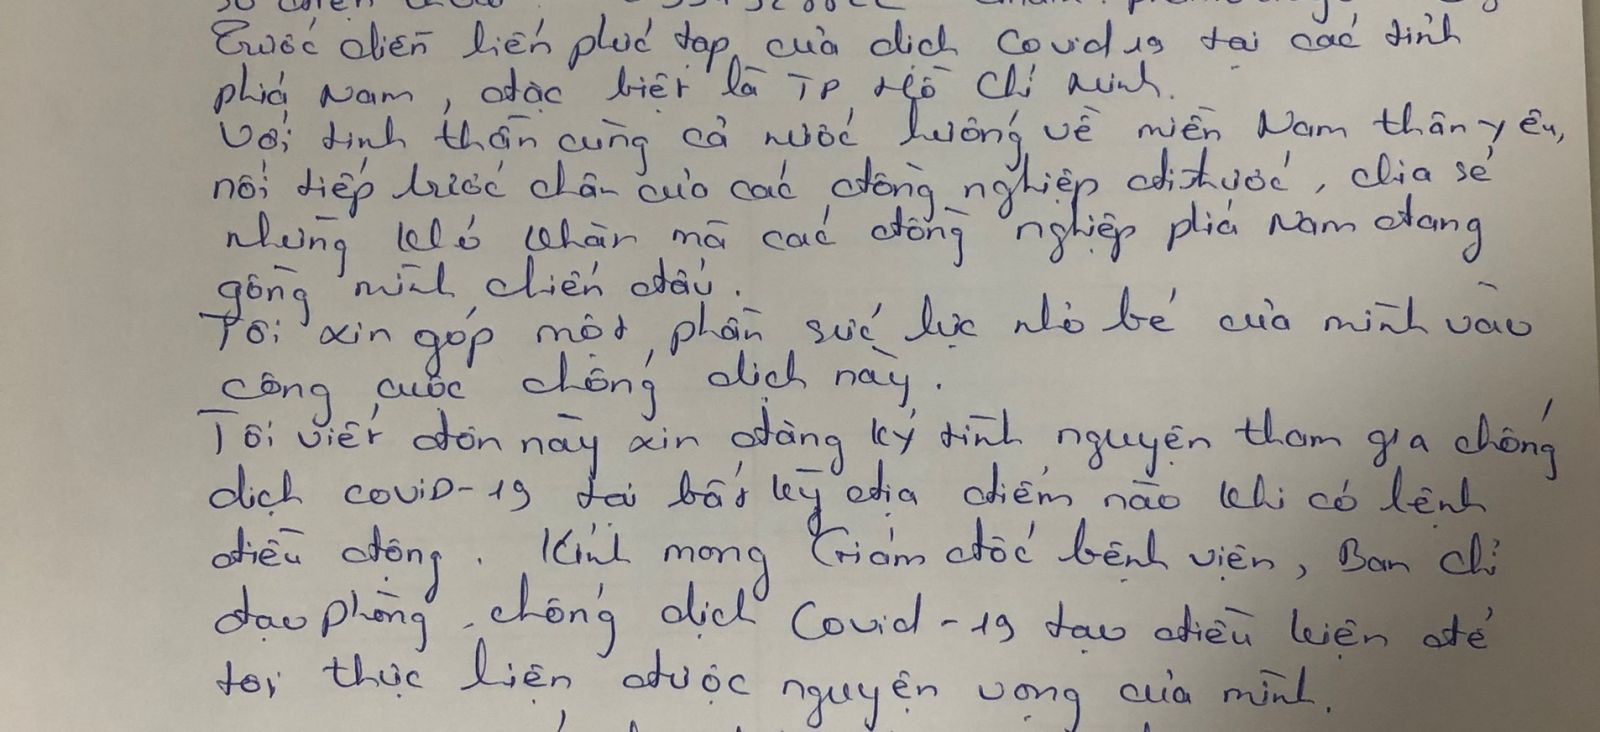 Trước diễn biến phức tạp của dịch Covid 19 tại các tỉnh
phía Nam, đặc biệt là TP Hồ Chí Minh.
Với tinh thần cùng cả nước hướng về miền Nam thân yêu,
nối tiếp bước chân của các đồng nghiệp đi trước, chia sẻ
những khó khăn mà các đồng nghiệp phía Nam đang
gồng mình chiến đấu.
Tôi xin góp một phần sức lực nhỏ bé của mình vào
công cuộc chống dịch này.
Tôi viết đơn này xin đăng ký tình nguyện tham gia chống
dịch COVID-19 tại bất kỳ địa điểm nào khi có lệnh
điều động. Kính mong Giám đốc bệnh viện, Ban chỉ
đạo phòng, chống dịch Covid-19 tạo điều kiện để
tôi thực hiện được nguyện vọng của mình.